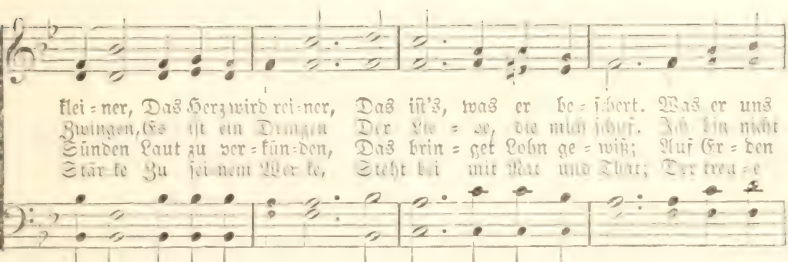 klei=ner, Das Herz wird rei=ner, Das iſt's, was er be=ſchert. Was er uns
Zwingen, Es iſt ein Dringen Der Lie=be, die mich ſchuf. Ich bin nicht
Sünden Laut zu ver=kün=den, Das brin=get Lohn ge=wiß; Auf Er=den
Stär=ke Zu ſei=nem Wer=ke, Steht bei mit Rat und That; Der treu=e